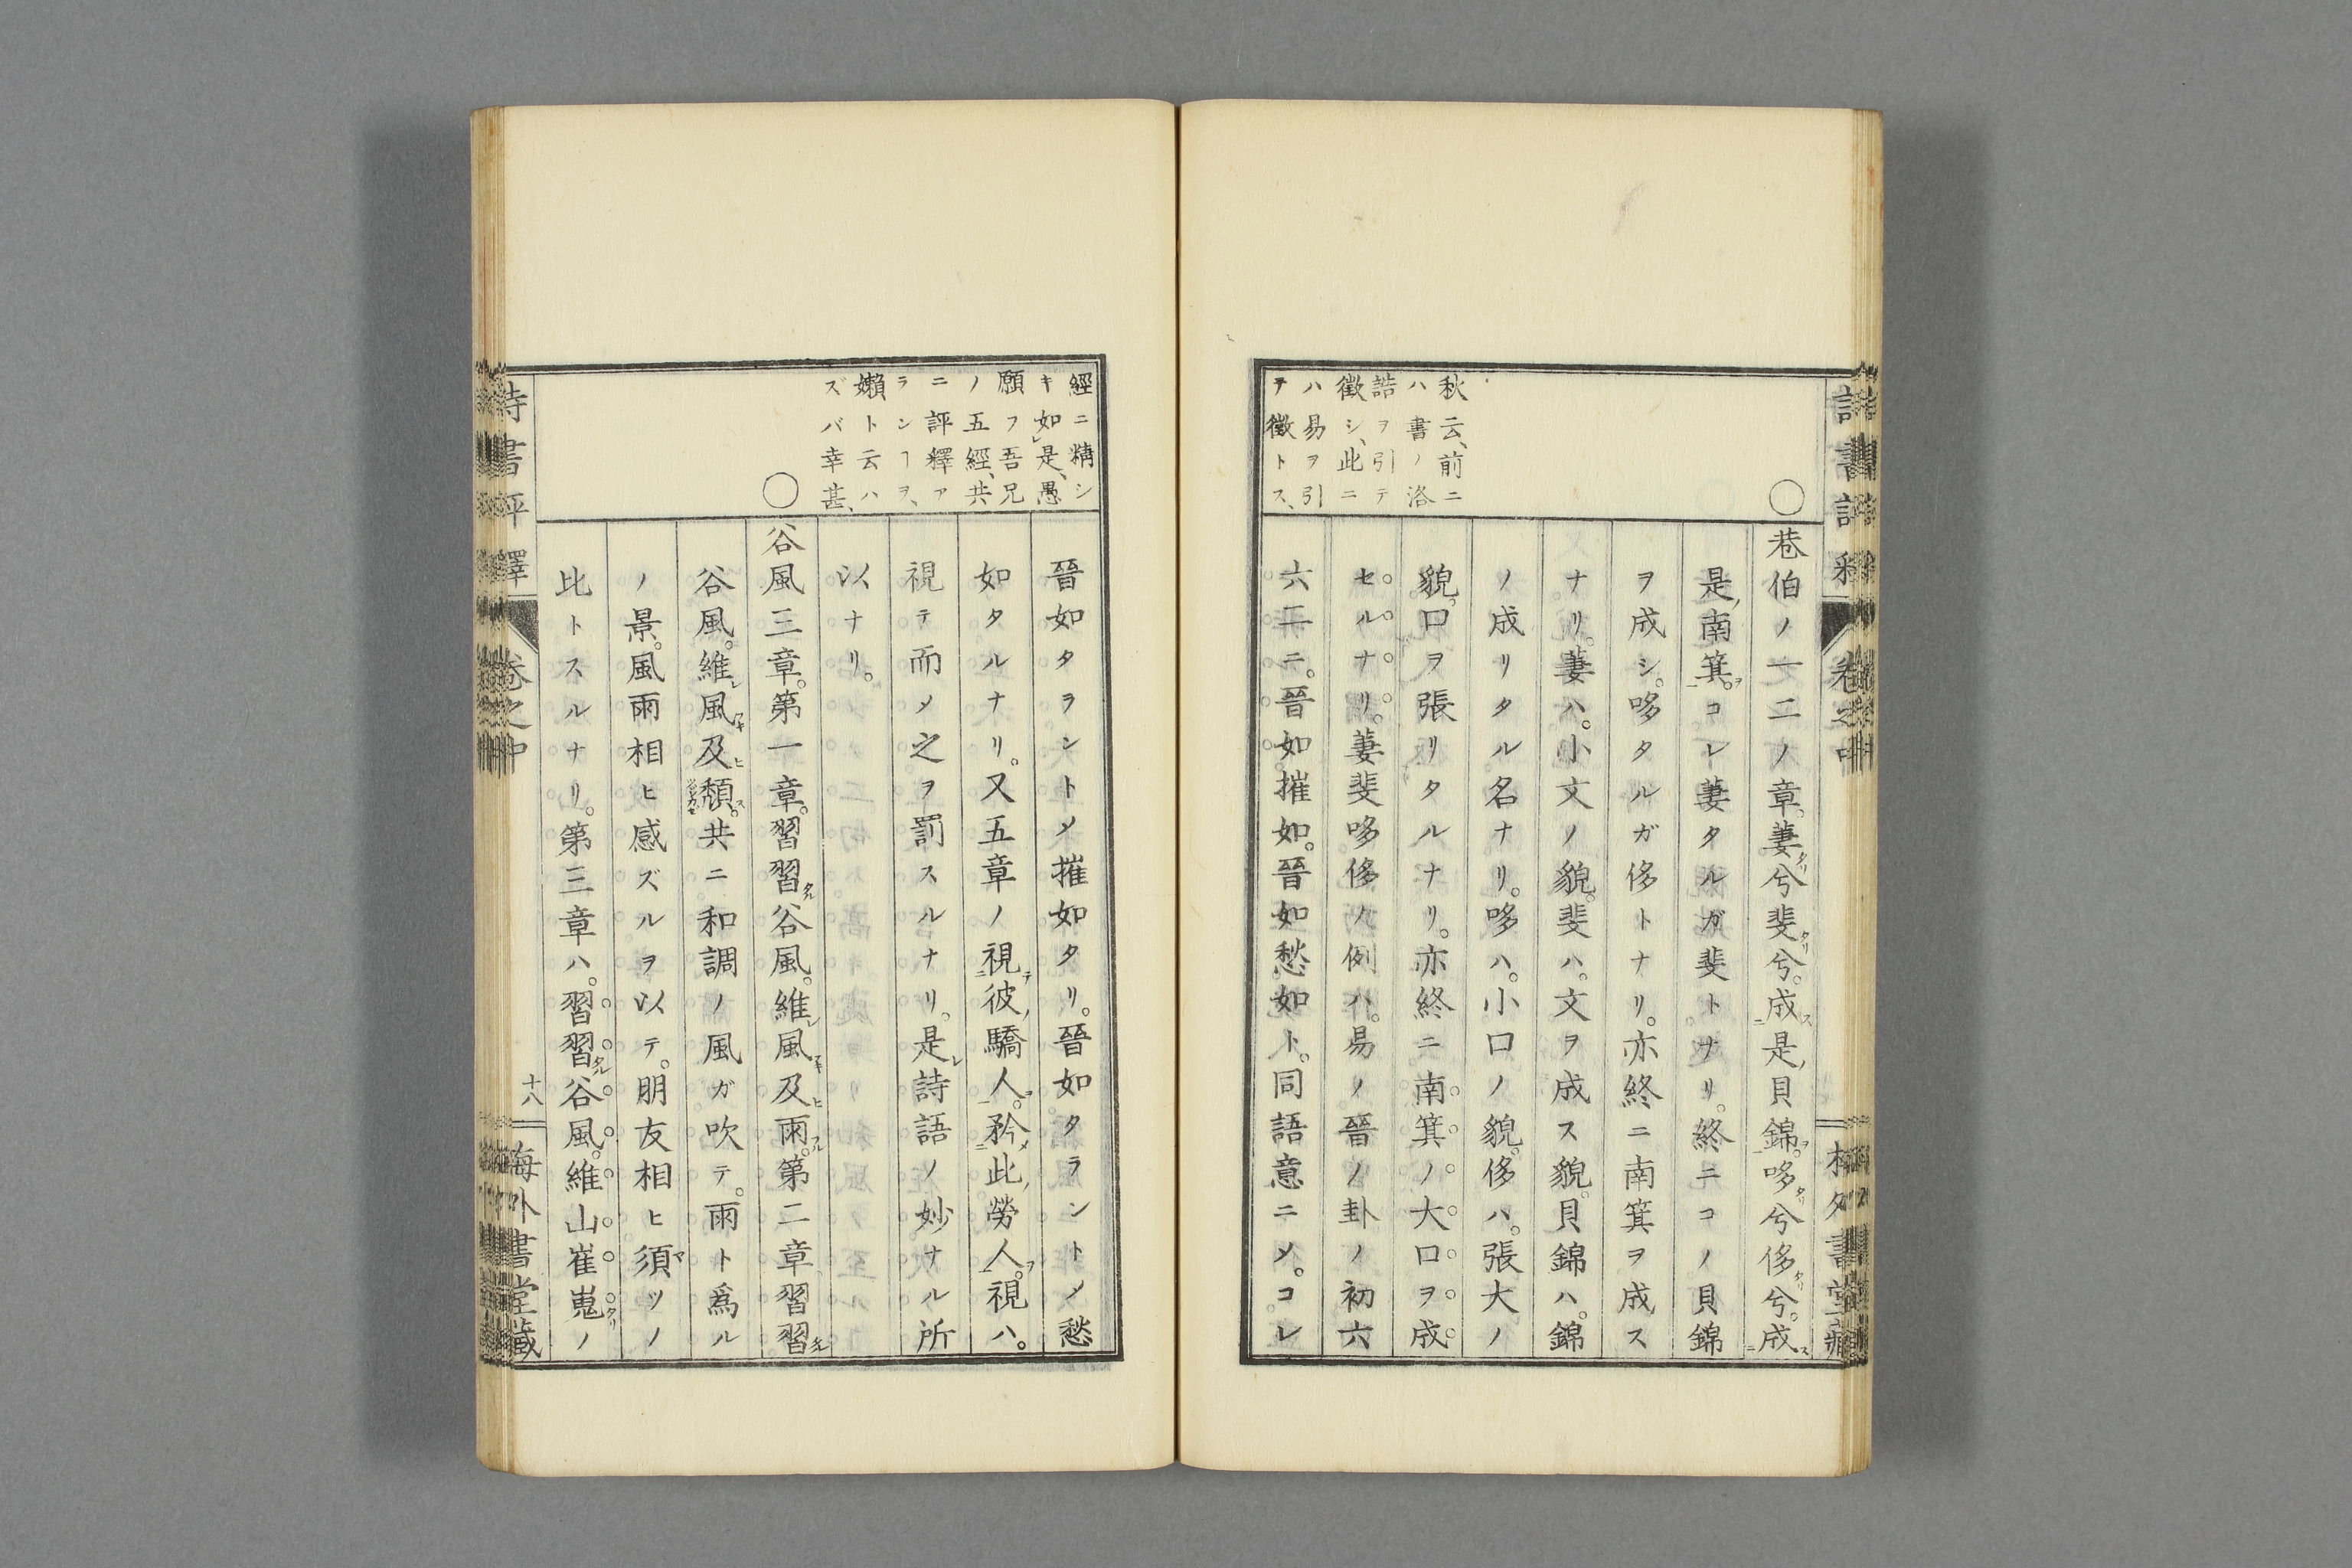 秋云、前ニ
ハ書ノ洛
誥ヲ引テ
徴シ、此ニ
ハ易ヲ引
テ徴トス、
○巷伯ノ一二ノ章。萋タリ兮斐タリ兮。成ス二是ノ貝錦ヲ一。哆タリ兮侈タリ兮。成ス二
是ノ南箕ヲ一。コレ萋タルガ斐トナリ。終ニコノ貝錦
ヲ成シ。哆タルガ侈トナリ。亦終ニ南箕ヲ成ス
ナリ。萋ハ。小文ノ貌。斐ハ。文ヲ成ス貌。貝錦ハ。錦
ノ成リタル名ナリ。哆ハ。小口ノ貌。侈ハ。張大ノ
貌。口ヲ張リタルナリ。亦終ニ南箕ノ大口ヲ成
セルナリ。萋斐哆侈ノ例ハ。易ノ晉ノ卦ノ初六
六二ニ。晉如摧如。晉如愁如ト。同語意ニメ。コレ
經ニ精シ
キ如レ是、愚
願フ吾兄
ノ五經、共
ニ評釋ア
ランヿヲ、
嬾ト云ハ
ズバ幸甚、
晉如タランとメ摧如タリ。晉如タラントメ愁
如タルナリ。又五章ノ視テ二彼ノ驕人ヲ一。矜メ二此ノ勞人ヲ一。視ハ。
視テ而メ之ヲ罰スルナリ。是レ詩語ノ妙ナル所
以ナリ。
○谷風三章。第一章。習習タル谷風。維レ風キ及ヒ雨フル。第二章習習タル
谷風。維レ風キ及ヒ頽ス。共ニ和調ノ風ガ吹テ。雨ト爲ル
ノ景。風雨相ヒ感ズルヲ以テ。朋友相ヒ須マツノ
比トスルナリ。第三章ハ。習習タル谷風。維山崔嵬タリノ
詩書評釋
巷之中
十八
海外書堂藏